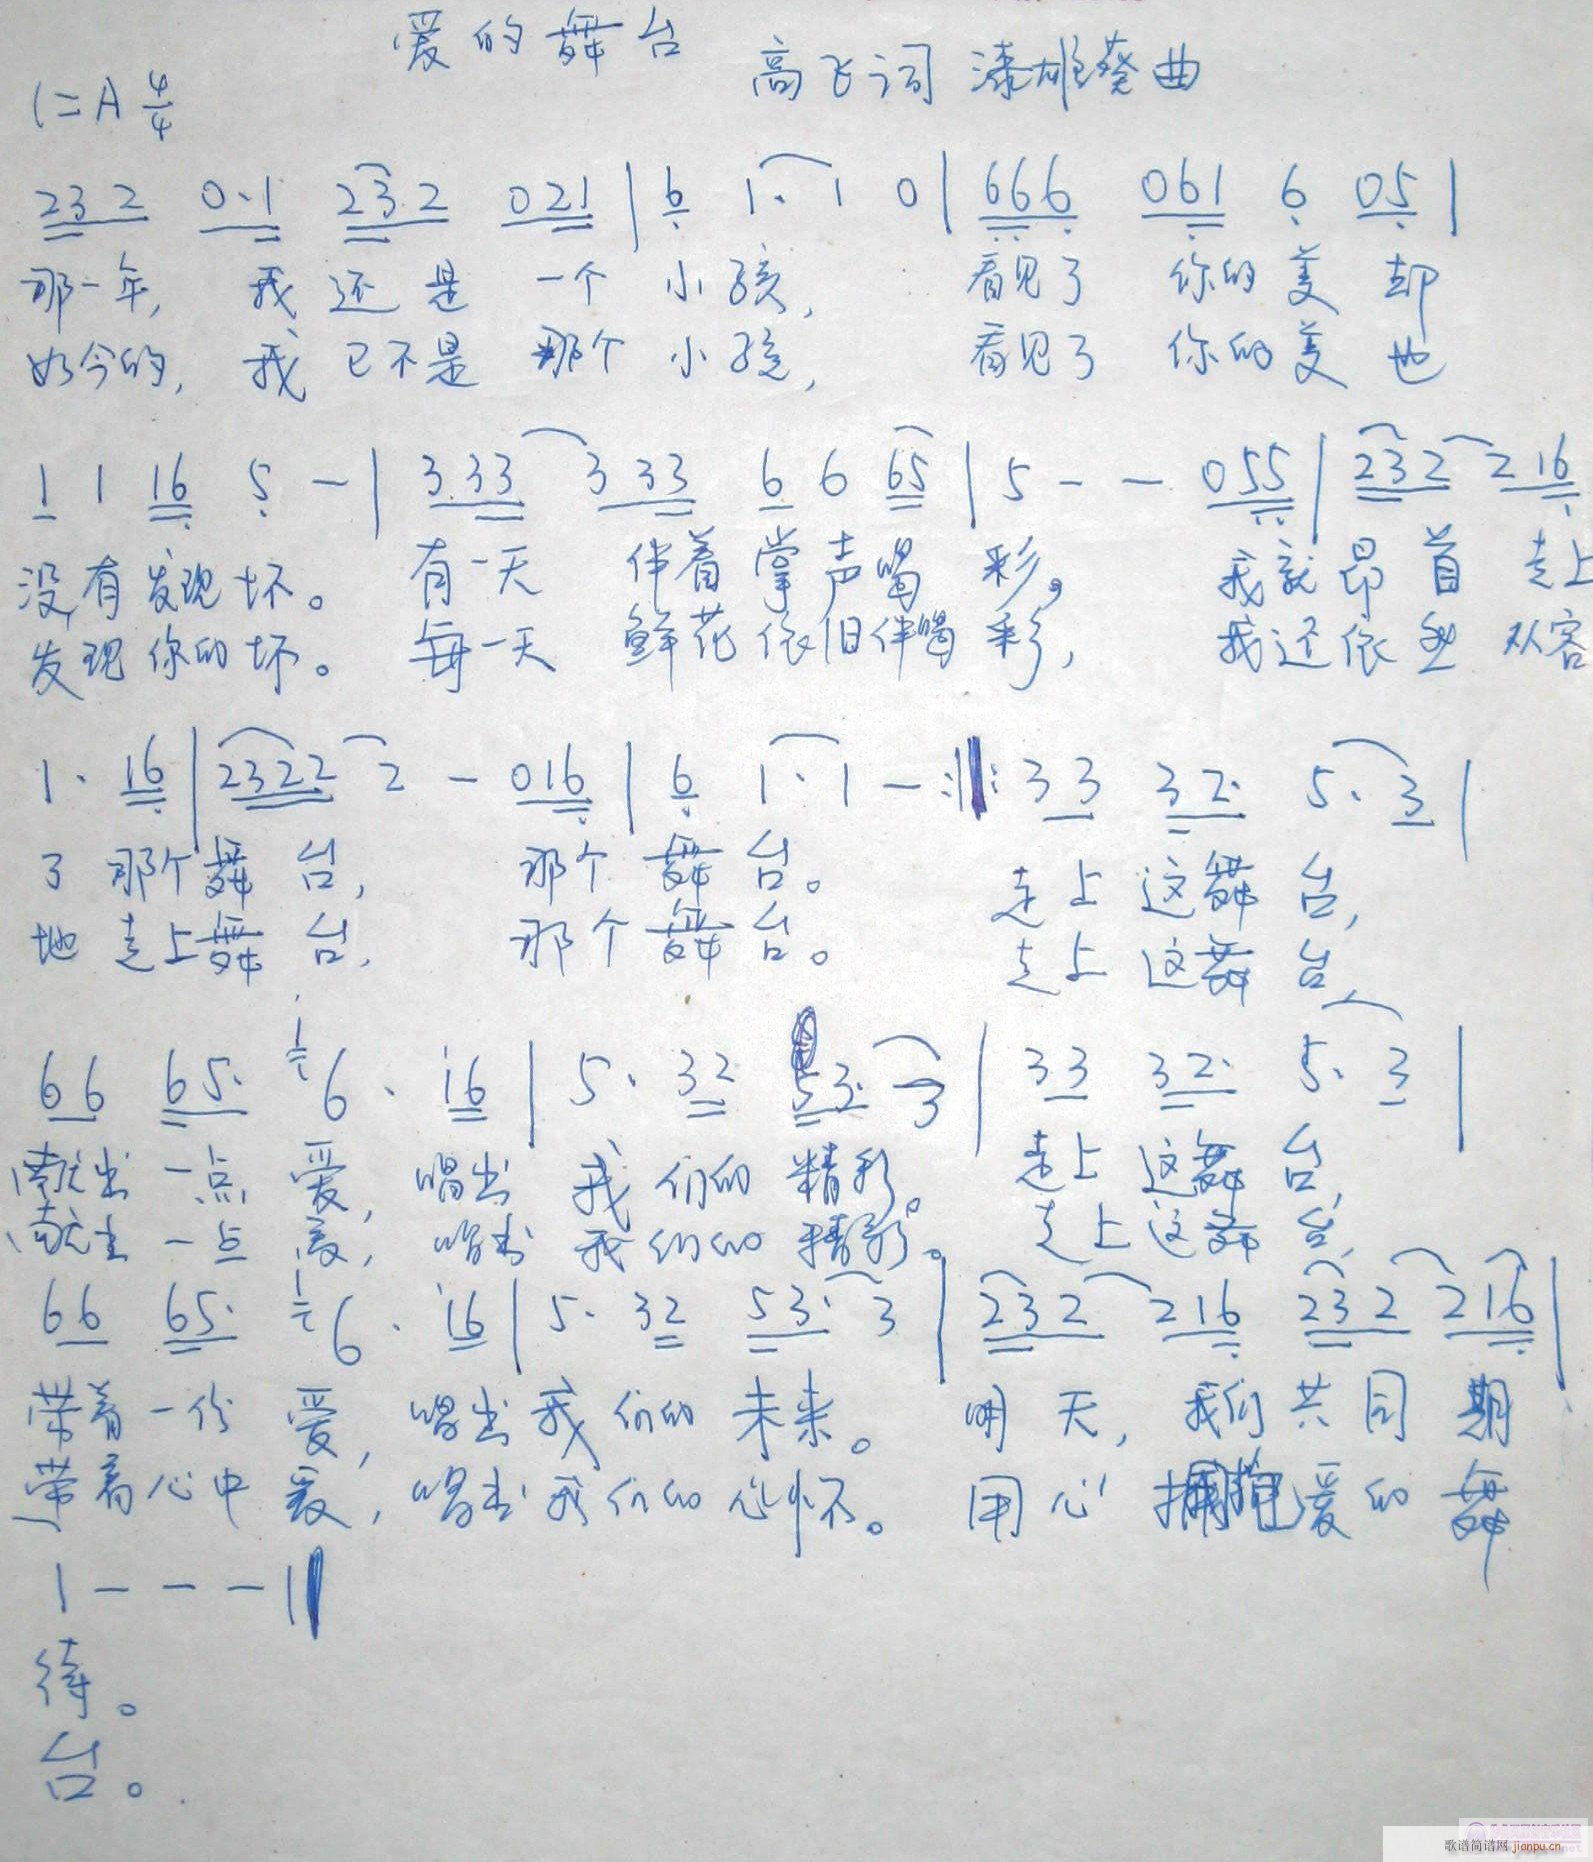 爱的舞台
高飞词 漆雄葵曲
1=A 4/4
232 0·1 232 021 | 6 1· 1 0 | 666 061 6 05 |
那一年, 我还是一个小孩, 看见了 你的美 却
如今的, 我已不是那个小孩, 看见了 你的美 也
1 1 16 5 - | 3.33 333 6 6 65 | 5 - - 055 | 232 216
没有发现坏。 有一天 伴着掌声喝彩。 我就昂首走上
发现你的坏。 每一天 鲜花依旧伴喝彩, 我还依然从容
1· 16 | 2322 2 - 016 | 6 1· 1 - :‖: 33 32· 5· 3 |
了 那个舞台, 那个舞台。 走上这舞台,
地 走上舞台, 那个舞台。 走上这舞台,
66 65· 1 6· 16 | 5· 32 53· 3 | 33 32· 5· 3 |
献出一点爱, 唱出我们的精彩。 走上这舞台,
献出一点爱, 唱出我们的精彩。 走上这舞台,
66 65· 1 6· 16 | 5· 32 53· 3 | 232 216 232 216 |
带着一份爱, 唱出我们的未来。 明天, 我们共同期
带着心中爱, 唱出我们的心怀。 用心拥抱爱的舞
1 - - - ‖
待。
台。
歌谱简谱网 jianpu.cn